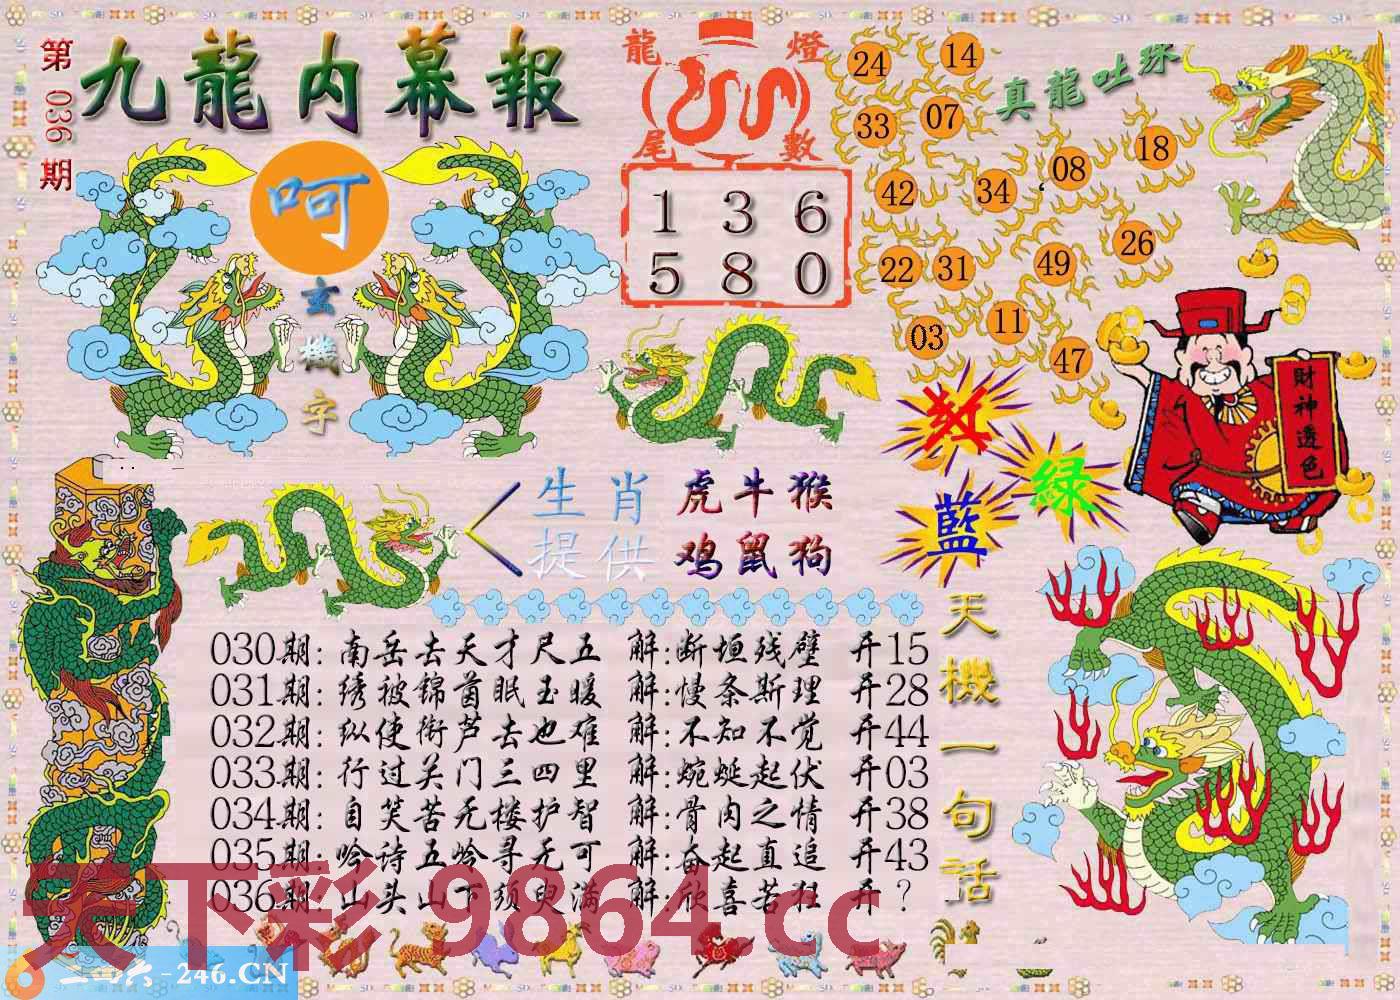 第036期
九龍内幕報
呵
玄機字
龍燈
尾數
1 3 6
5 8 0
24 14
33 07
42 34 08 18
22 31 49 26
03 11 47
真龍吐珠
紅
绿
藍
財神透色
生肖 虎牛猴
提供 鸡鼠狗
030期: 南岳去天才尺五 解:断垣残壁 开15
031期: 绣被锦茵眠玉暖 解:慢条斯理 开28
032期: 纵使衔芦去也难 解:不知不觉 开44
033期: 行过关门三四里 解:蜿蜒起伏 开03
034期: 自笑苦无楼护智 解:骨肉之情 开38
035期: 吟诗五岭寻无可 解:奋起直追 开43
036期: 山头山下须臾满 解:欣喜若狂 开?
天機一句話
天下彩 9864.cc
二四六-246.CN